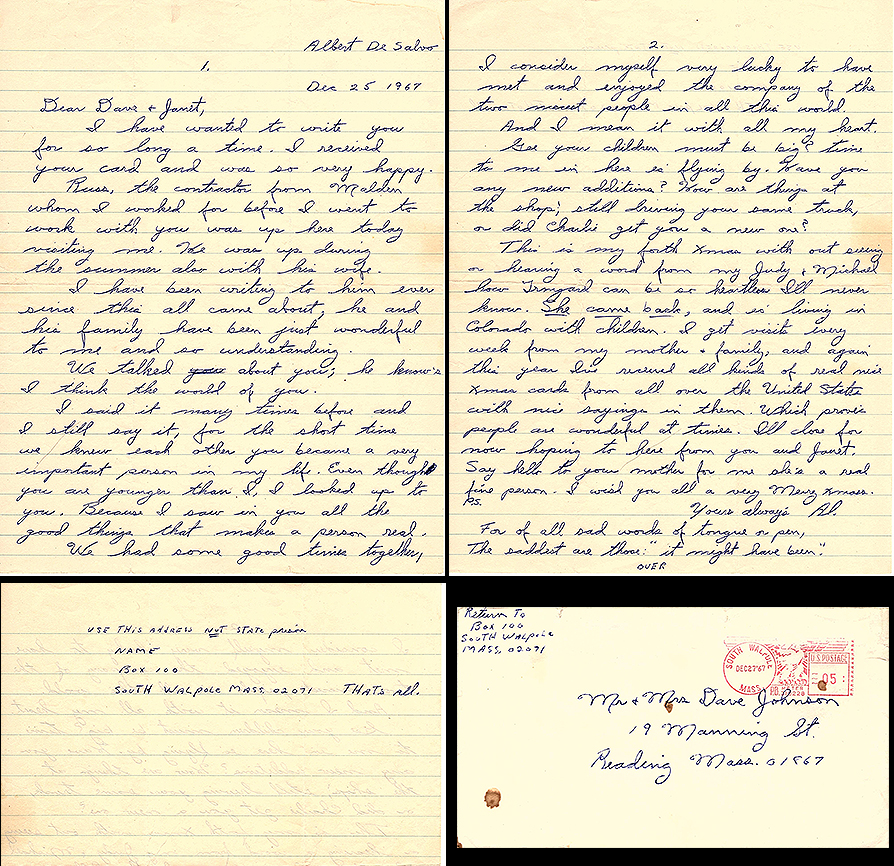 Albert De Salvo
1.
Dec 25 1967
Dear Dave & Janet,
I have wanted to write you
for so long a time. I received
your card and was so very happy.
Russ, the contractor from Malden
whom I worked for before I went to
work with you was up here today
visiting me. He was up during
the summer also with his wife.
I have been writing to him ever
since this all came about, he and
his family have been just wonderful
to me and so understanding.
We talked about you; he know's
I think the world of you.
I said it many times before and
I still say it, for the short time
we knew each other you became a very
important person in my life. Even though
you are younger than I, I looked up to
you. Because I saw in you all the
good things that makes a person real.
We had some good times together,
2.
I consider myself very lucky to have
met and enjoyed the company of the
two nicest people in all this world.
And I mean it with all my heart.
Gee your children must be big? time
to me in here is flying by. Have you
any new additions? How are things at
the shop; still driving your same truck,
or did Charlie get you a new one?
This is my forth Xmas with out seeing
or hearing a word from my Judy & Michael
how Irmgard can be so heartless I'll never
know. She came back, and is living in
Colorado with children. I get visits every
week from my mother & family, and again
this year I've received all kinds of real nice
Xmas cards from all over the United States
with nice sayings in them. Which proves
people are wonderful at times. I'll close for
now hoping to here from you and Janet.
Say hello to your mother for me she's a real
fine person. I wish you all a very Merry Xmass.
P.S. Yours always Al.
For of all sad words of tongue or pen,
The saddest are those: "it might have been".
OVER
USE THIS ADDRESS NOT STATE prison
NAME
BOX 100
SOUTH WALPOLE MASS. 02071 THATS All.
Return To
Box 100
SOUTH WALPOLE
MASS, 02071
SOUTH WALPOLE
DEC27'67
MASS.
U.S. POSTAGE
05
Mr & Mrs Dave Johnson
19 Manning St.
Reading Mass. 01867